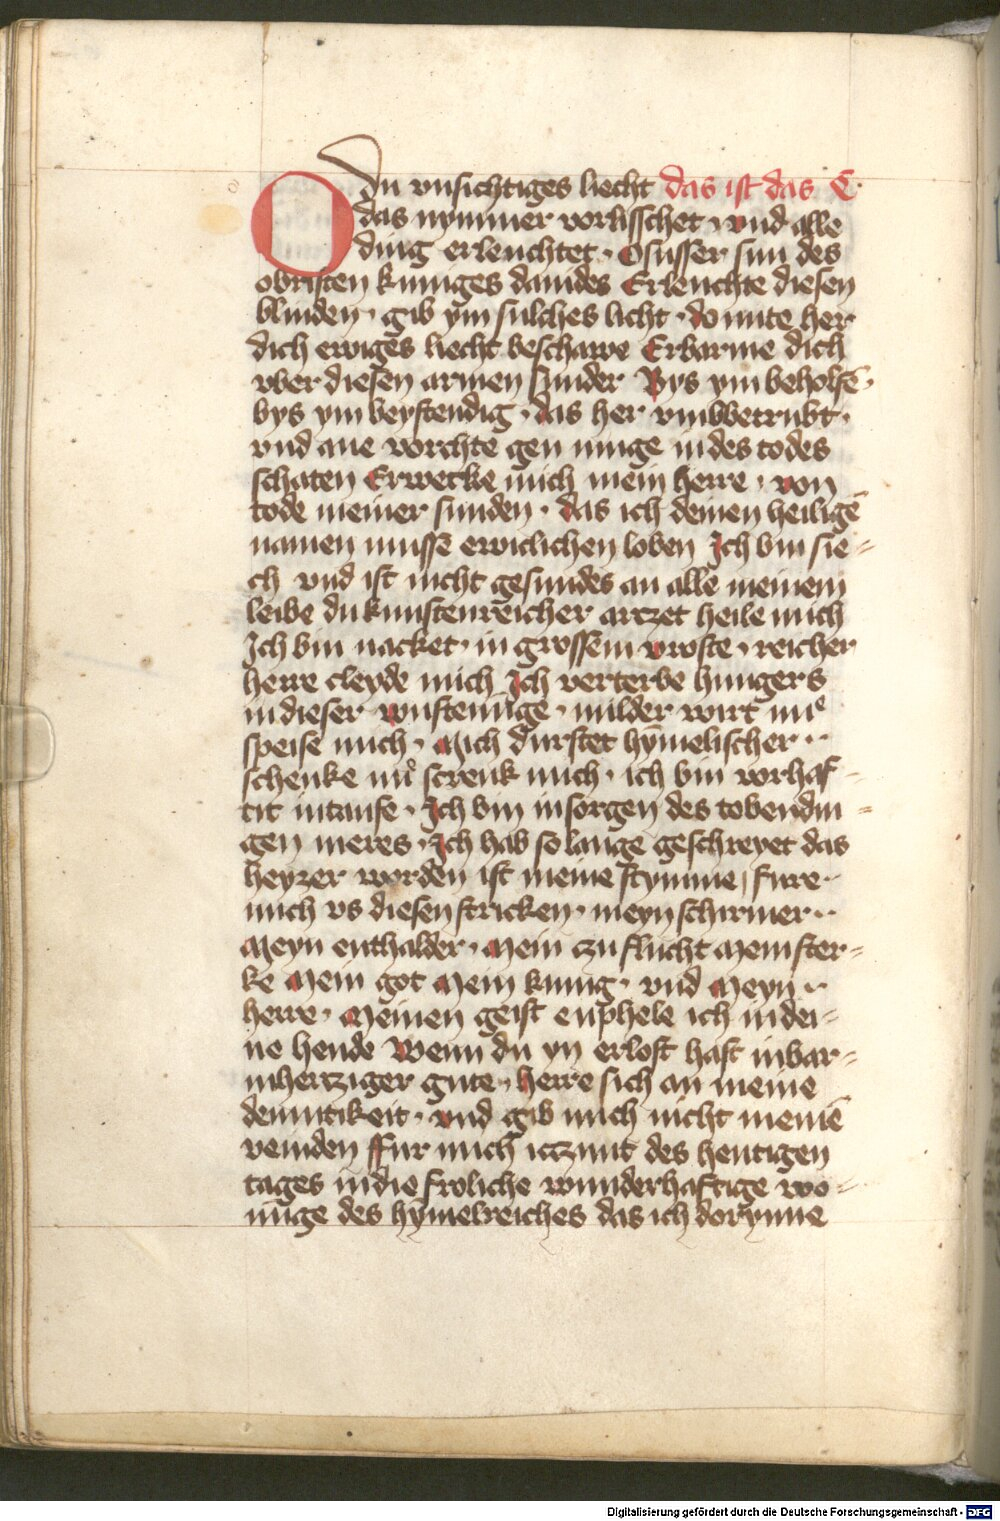 O du vnsichtiges liecht das ist das C·
das nymmer vorlisschet · vnd alle
ding erleuchtet · O susser sun des
obristen kuniges dauides Erleuchte diesen
blinden · gib ym sulches licht · do mite her
dich ewiges liecht beschawe Erbarme dich
vber diesen armen sunder Bys ym beholfē ·
bys ym beystendig · das her vmbbetrubt ·
vnd ane vorchte gen muge in des todes
schaten Erwecke mich mein herre · von
tode meiner sunden · das ich deinen heiligē
namen musse ewiclichen loben Ich bin sie=
ch vnd ist nicht gesundes an alle meinem
leibe du kunstenreicher artzet heile mich
Ich bin nacket · in grossem vroste · reicher
herre cleyde mich Ich verterbe hungers
in dieser wustenūge · milder wirt nu
speise mich · Mich durstet hymelischer ··
schenke nu trenk mich · ich bin vorhaf=
tit · Ich bin in sorgen des tobendin=
gen meres · Ich hab so lange geschreyet das
heyzer worden ist meine stymme / fure ··
mich vs diesen stricken · meyn schirmer ··
Meyn enthalder · Mein zu flucht Mein ster=
ke Mein got Mein kunig · vnd Meyn ··
herre · Meinen geist enphele ich in dei=
ne hende Wenn du yn erlost hast in bar=
mhertziger gute · herre sich an meine
demutikeit · vnd gib mich nicht meinē
veinden ffur mich itzunt des heutigen
tages in die froliche wunderhaftige wo=
nūge des hymelreiches das ich dorynne
Digitalisierung gefördert durch die Deutsche Forschungsgemeinschaft - DFG